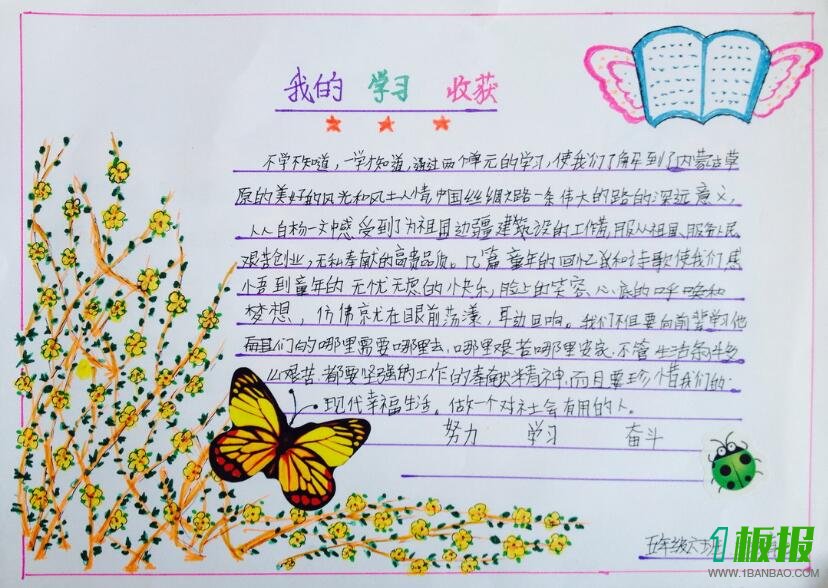 我的 学习 收获
不学不知道，一学才知道，通过两个单元的学习，使我们了解到了内蒙古草
原的美好的风光和风土人情，中国丝绸之路一条伟大的路的深远意义，
从白杨一文中感受到了为祖国边疆建设的工作者，服从祖国、服务人民
艰苦创业，无私奉献的高贵品质。几篇童年的回忆录和诗歌使我们感
悟到童年的无忧无虑的快乐，脸上的笑容、心底的呼唤和
梦想，仿佛就在眼前荡漾，耳边回响。我们不但要向前辈学习他
而且们的哪里需要哪里去，哪里艰苦哪里安家，不管生活条件多
么艰苦，都要坚强的工作的奉献精神，而且要珍惜我们的
现代幸福生活。做一个对社会有用的人。
努力 学习 奋斗
五年级六班
1板报
WWW.1BANBAO.COM